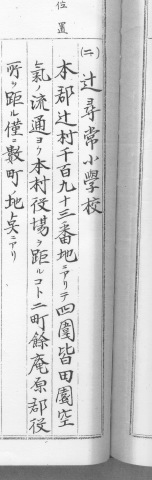 位置
(二)辻尋常小學校
本郡辻村千百九十三番地ニアリテ四圍皆田園空
氣ノ流通ヨク本村役場ヲ距ルコト二町餘庵原郡役
所ヲ距ル僅ニ數町ノ地点ニアリ